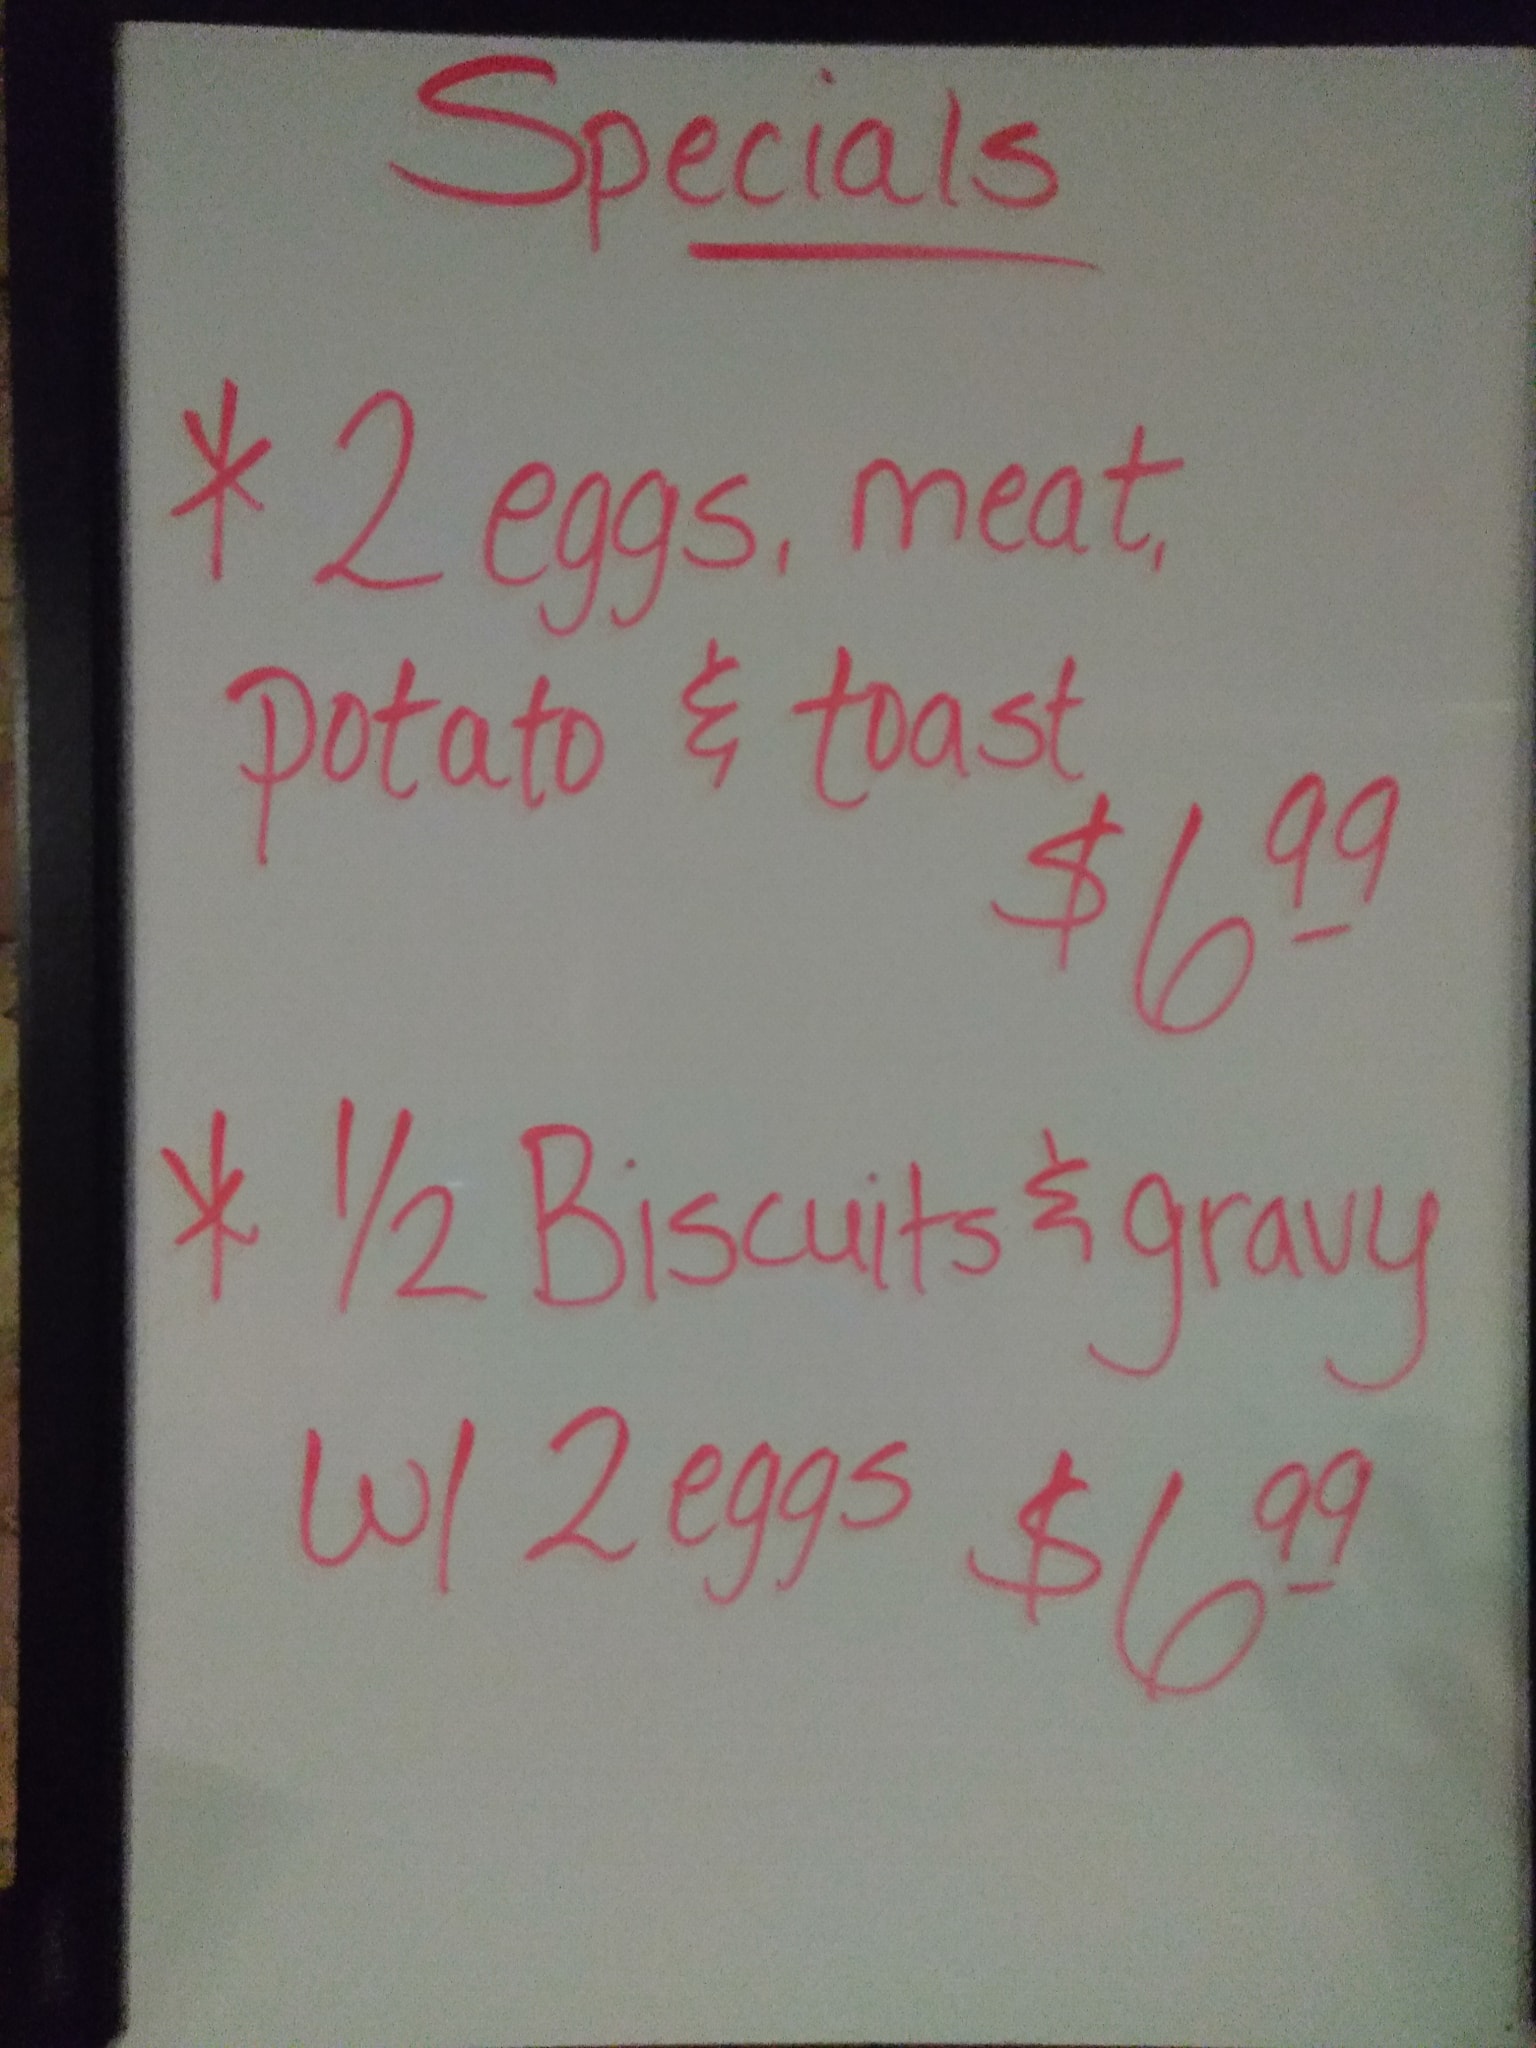 Specials
* 2 eggs, meat,
potato & toast
$6.99
* 1/2 Biscuits & gravy
w/ 2 eggs $6.99